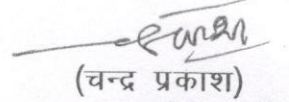 (चन्द्र प्रकाश)